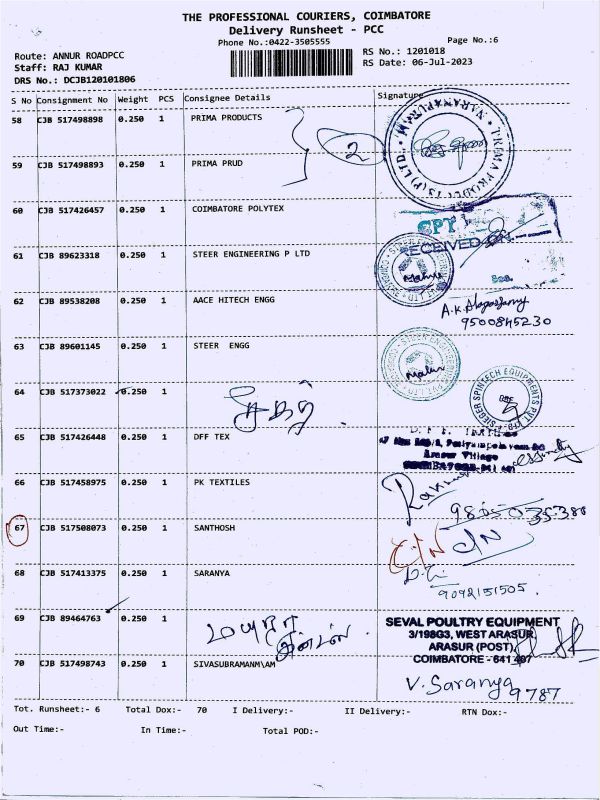 THE PROFESSIONAL COURIERS, COIMBATORE
Delivery Runsheet - PCC
Phone No.:0422-3505555
Page No.:6
Route: ANNUR ROADPCC
RS No.: 1201018
Staff: RAJ KUMAR
RS Date: 06-Jul-2023
DRS No.: DCJB120101806
S No Consignment No Weight PCS Consignee Details Signature
58 CJB 517498898 0.250 1 PRIMA PRODUCTS
2
59 CJB 517498893 0.250 1 PRIMA PRUD
60 CJB 517426457 0.250 1 COIMBATORE POLYTEX
CPT
RECEIVED ON
61 CJB 89623318 0.250 1 STEER ENGINEERING P LTD
62 CJB 89538208 0.250 1 AACE HITECH ENGG
9500845230
63 CJB 89601145 0.250 1 STEER ENGG
64 CJB 517373022 0.250 1
65 CJB 517426448 0.250 1 DFF TEX
Annur Village
66 CJB 517458975 0.250 1 PK TEXTILES
67 CJB 517508073 0.250 1 SANTHOSH
C/N C/N
68 CJB 517413375 0.250 1 SARANYA
9092151505
69 CJB 89464763 0.250 1
SEVAL POULTRY EQUIPMENT
3/198G3, WEST ARASUR,
ARASUR (POST),
COIMBATORE - 641 407
70 CJB 517498743 0.250 1 SIVASUBRAMANM\AM
V. Saranya 9787
Tot. Runsheet:- 6 Total Dox:- 70 I Delivery:- II Delivery:- RTN Dox:-
Out Time:- In Time:- Total POD:-